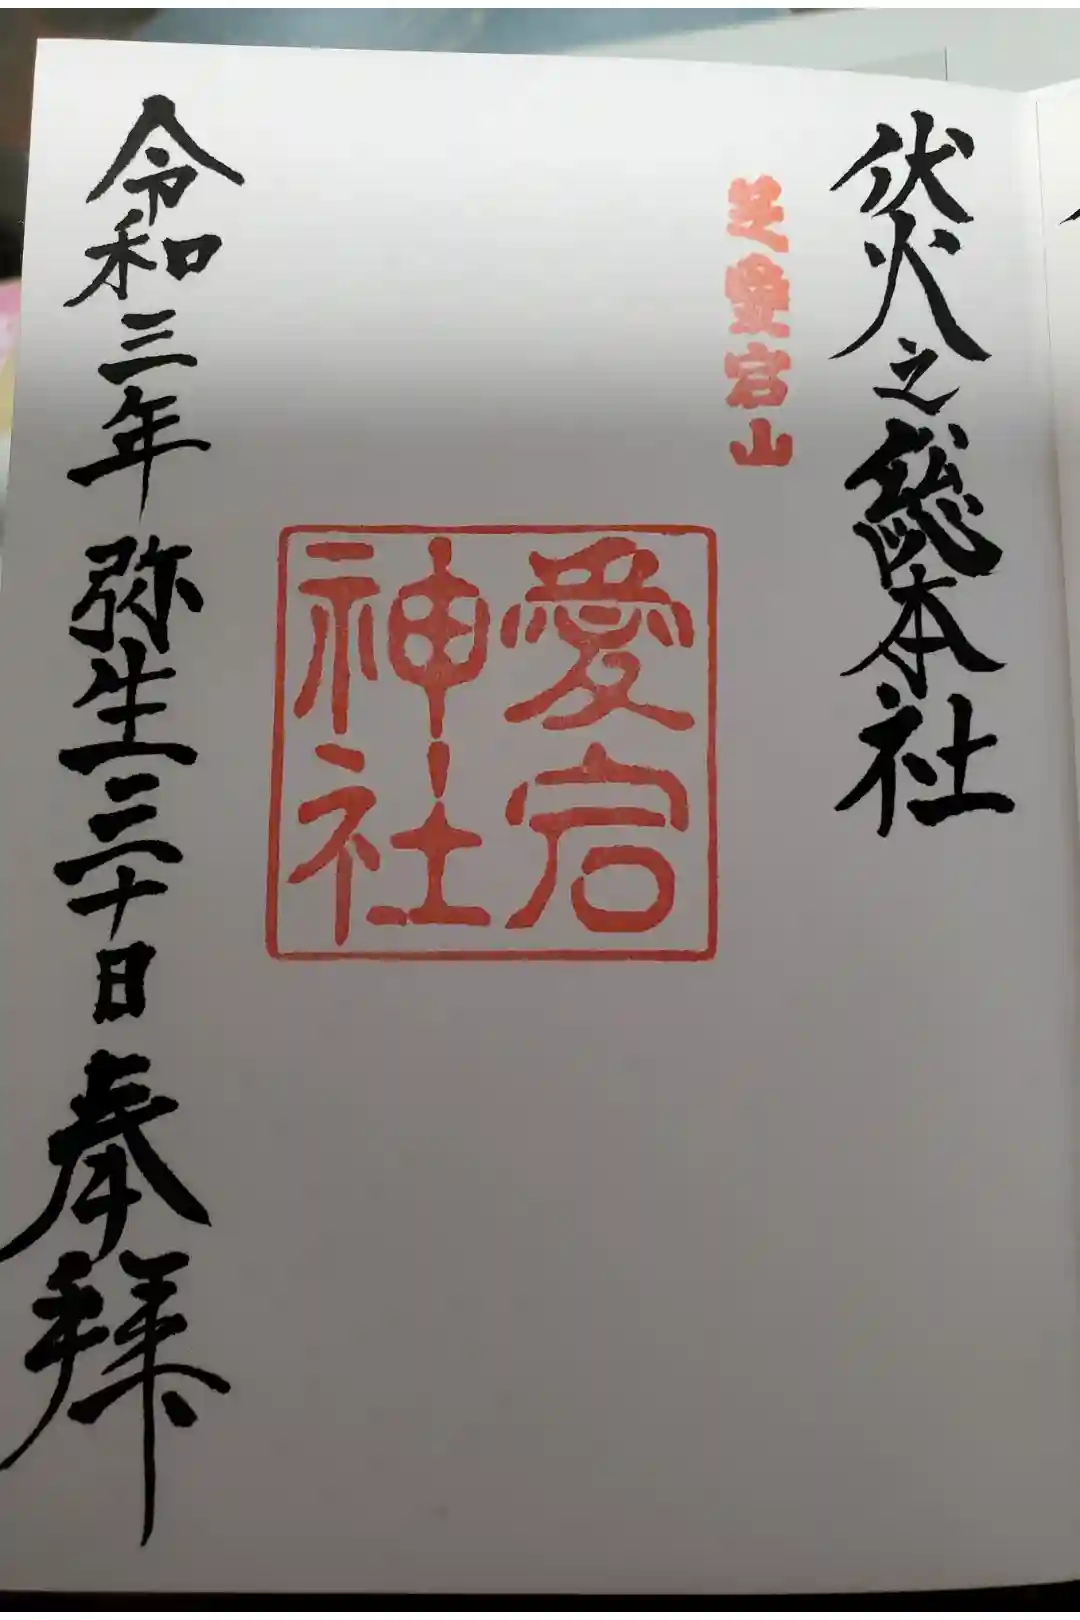 伏火之総本社
芝愛宕山
愛宕
神社
令和三年弥生三十日奉拝